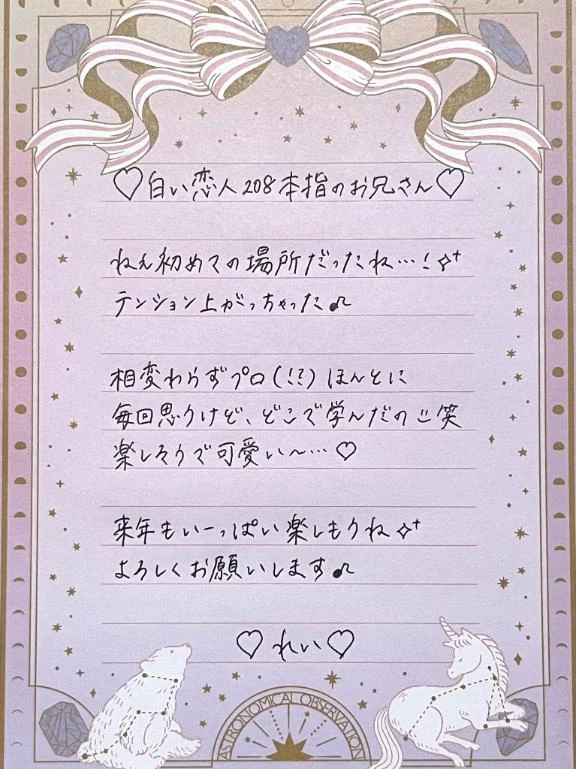 ♡白い恋人208本指のお兄さん♡
ねえ初めての場所だったね…！✧⁺
テンション上がっちゃった♫
相変わらずプロ(!?)ほんとに
毎回思うけど、どこで学んだの 笑
楽しそうで可愛い〜…♡
来年もいーっぱい楽しもうね✧⁺
よろしくお願いします♫
♡れい♡
ASTRONOMICAL OBSERVATION